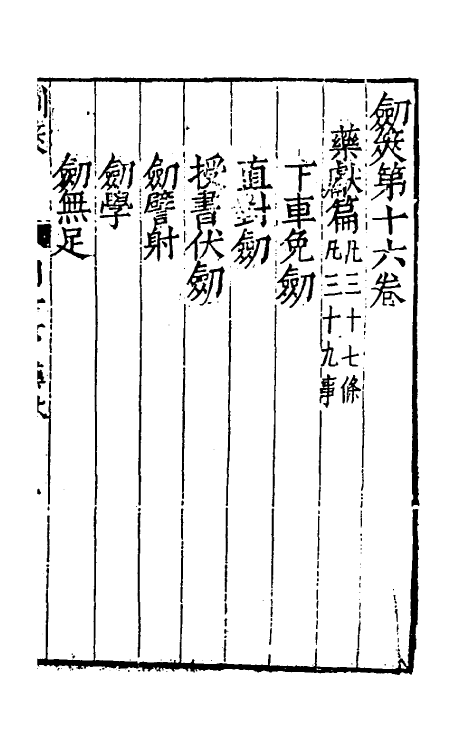 劒筴第十六卷
藥獻篇凡三十七條
凡三十九事
下車免劒
直對劒
授書伏劒
劒譬射
劒學
劒無足